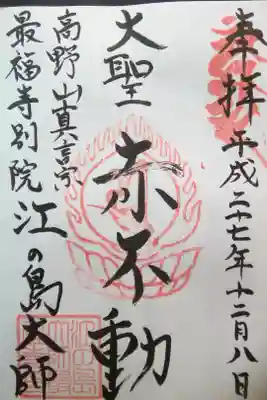 奉拝 平成二十七年十二月八日
大聖 赤不動
高野山真言宗
最福寺別院 江の島大師